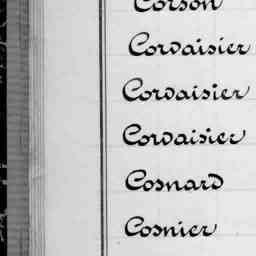 Corson
Corvaisier
Corvaisier
Corvaisier
Cosnard
Cosnier